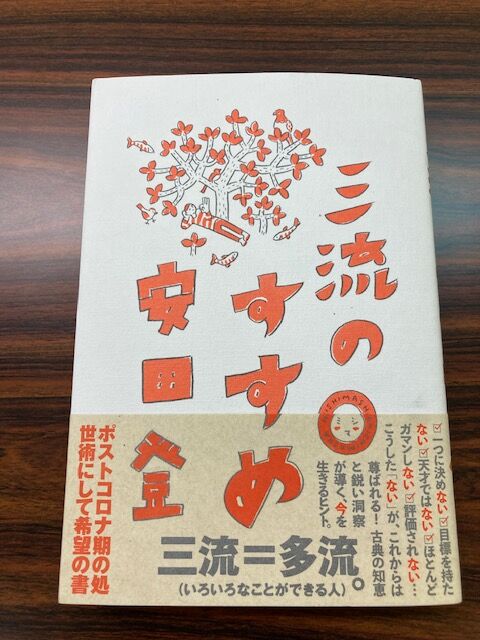 三流の
すすめ
安田
登
MISHIMASHA
ミシマ
☑一つに決めない☑目標を持た
ない☑天才ではない☑ほとんど
ガマンしない☑評価されない…
こうした「ない」が、これからは
尊ばれる!古典の知恵
と鋭い洞察
が導く、今を
生きるヒント。
三流=多流。
(いろいろなことができる人)
ポストコロナ期の処
世術にして希望の書